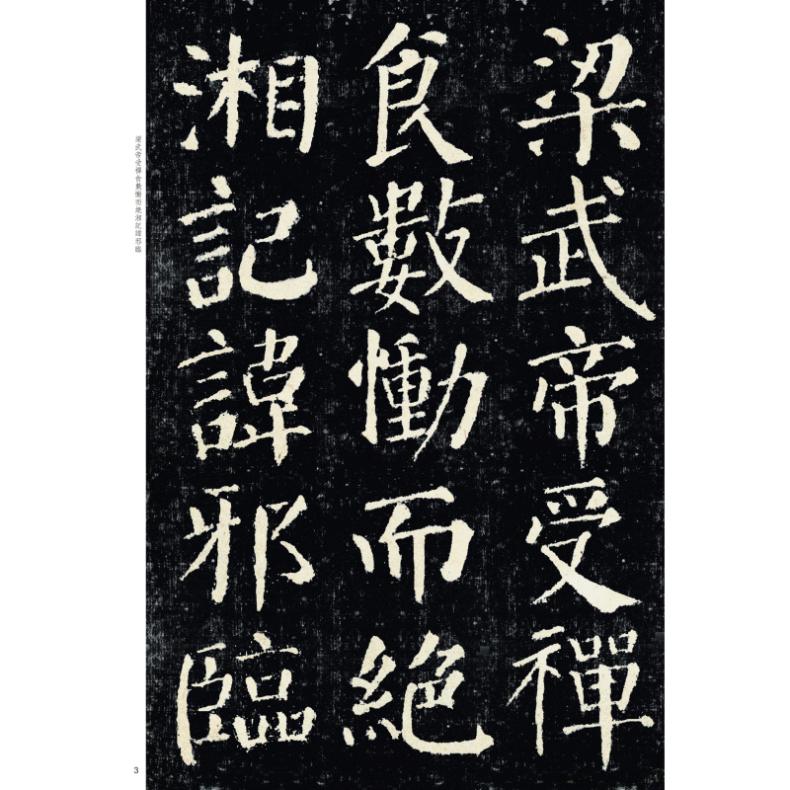 梁武帝受禪
食數慟而絕
湘記諱邪臨
梁武帝受禪食數慟而絕湘記諱邪臨
3